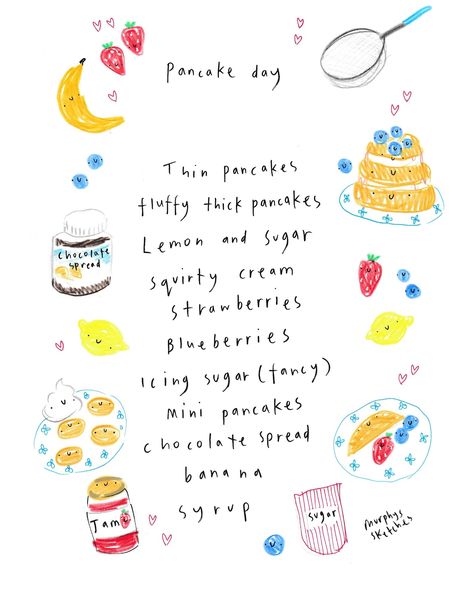 Pancake day
Thin pancakes
fluffy thick pancakes
Lemon and sugar
squirty cream
strawberries
Blueberries
Icing sugar (fancy)
mini pancakes
chocolate spread
banana
syrup
chocolate
spread
Jam
sugar
murphys
sketches